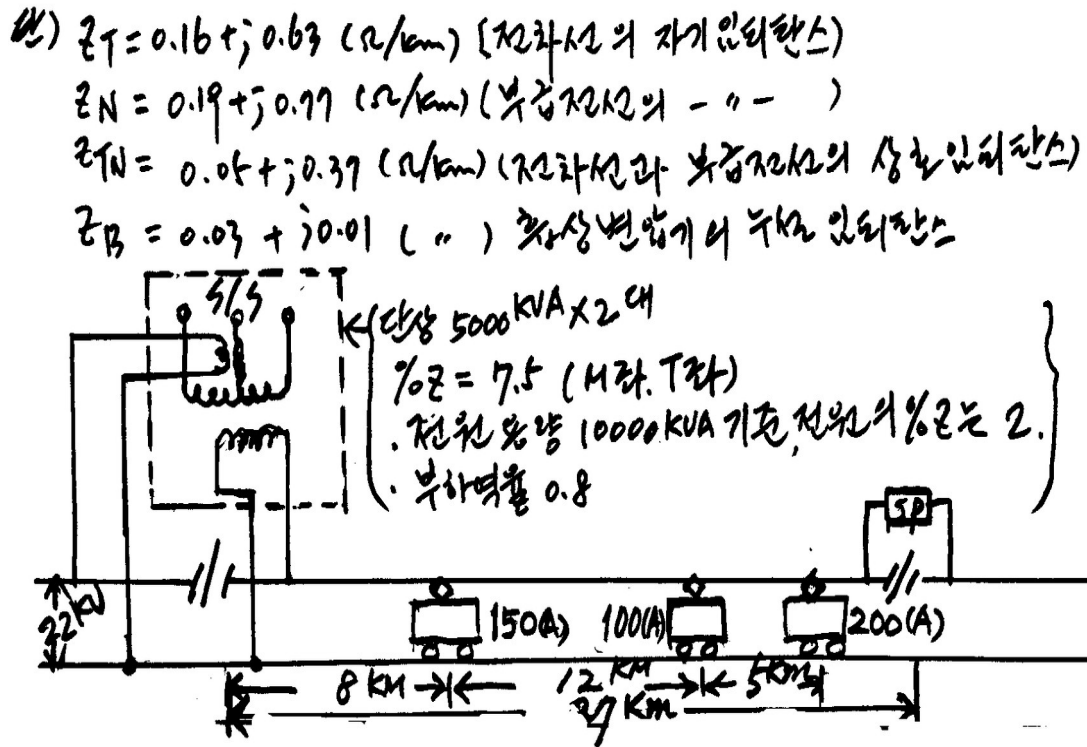 단) Z_T = 0.16 + j0.63 (Ω/km) (전차선의 자기임피탄스)
Z_N = 0.19 + j0.77 (Ω/km) (부급전선의 - 〃 - )
Z_TN = 0.05 + j0.37 (Ω/km) (전차선과 부급전선의 상호임피탄스)
Z_B = 0.03 + j0.01 ( 〃 ) 흡상변압기의 누설임피탄스
S/S
단상 5000 KVA × 2대
%Z = 7.5 (M좌. T좌)
· 전원용량 10000 KVA 기준, 전원의 %Z는 2.
· 부하역율 0.8
SP
22 KV
150(A) 100(A) 200(A)
8 KM 12 KM 5 KM
27 Km